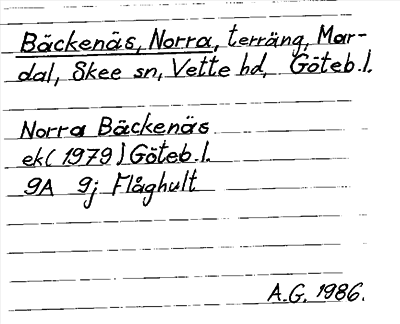 Bäckenäs, Norra, terräng, Mör-
dal, Skee sn, Vette hd, Göteb.l.
Norra Bäckenäs
ek (1979) Göteb.l.
9A 9j Flåghult
A.G. 1986.